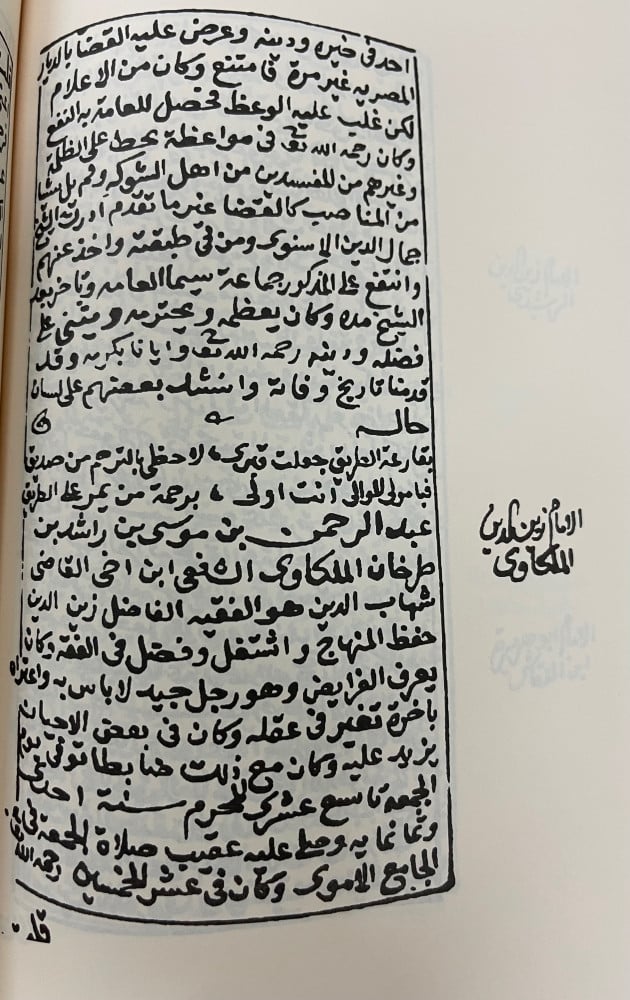 احد في خيره ودينه وعرض عليه القضا بالديار
المصريه غير مرة فامتنع وكان من الاعلام
لكن غلب عليه الوعظ فحصل للعامة به النفع
وكان رحمه الله تع في مواعظة يحط على الظلمة
وغيرهم من المفسدين من اهل الشوكه ولم يل شيا
من المناصب كالقضا غير ما تقدم ادرك الشيخ
جمال الدين الاسنوى ومن في طبقته واخذ عنهم
وانتفع على المذكور جماعة سيما العامه وتاخر بعد
الشيخ مده وكان يعظمه ويحترمه ويثني على
فضله ودينه رحمه الله تع وايانا بكرمه وقد
قدمنا تاريخ وفاتة وانشد بعضهم على لسان
حاله
بقارعة الطريق جعلت قبرى لاحظى بالترحم من صديق
فيا مولى الموالى انت اولى برحمة من يمر على الطريق
عبد الرحمن بن موسى بن راشد بن
طرخان الملكاوى الشفعي ابن اخي القاضي
شهاب الدين هو الفقيه الفاضل زين الدين
حفظ المنهاج واشتغل وفضل في الفقه وكان
يعرف الفرايض وهو رجل جيد لاباس به واعتراه
باخرة تغير في عقله وكان في بعض الاحيان
يزيد عليه وكان مع ذلك ضابطا توفي يوم
الجمعة تاسع عشرى المحرم سنة احدى
وثمانمايه وصلى عليه عقيب صلاة الجمعة في
الجامع الاموى وكان في عشر الخمسين رحمه الله
الامام زين الدين
الملكاوى